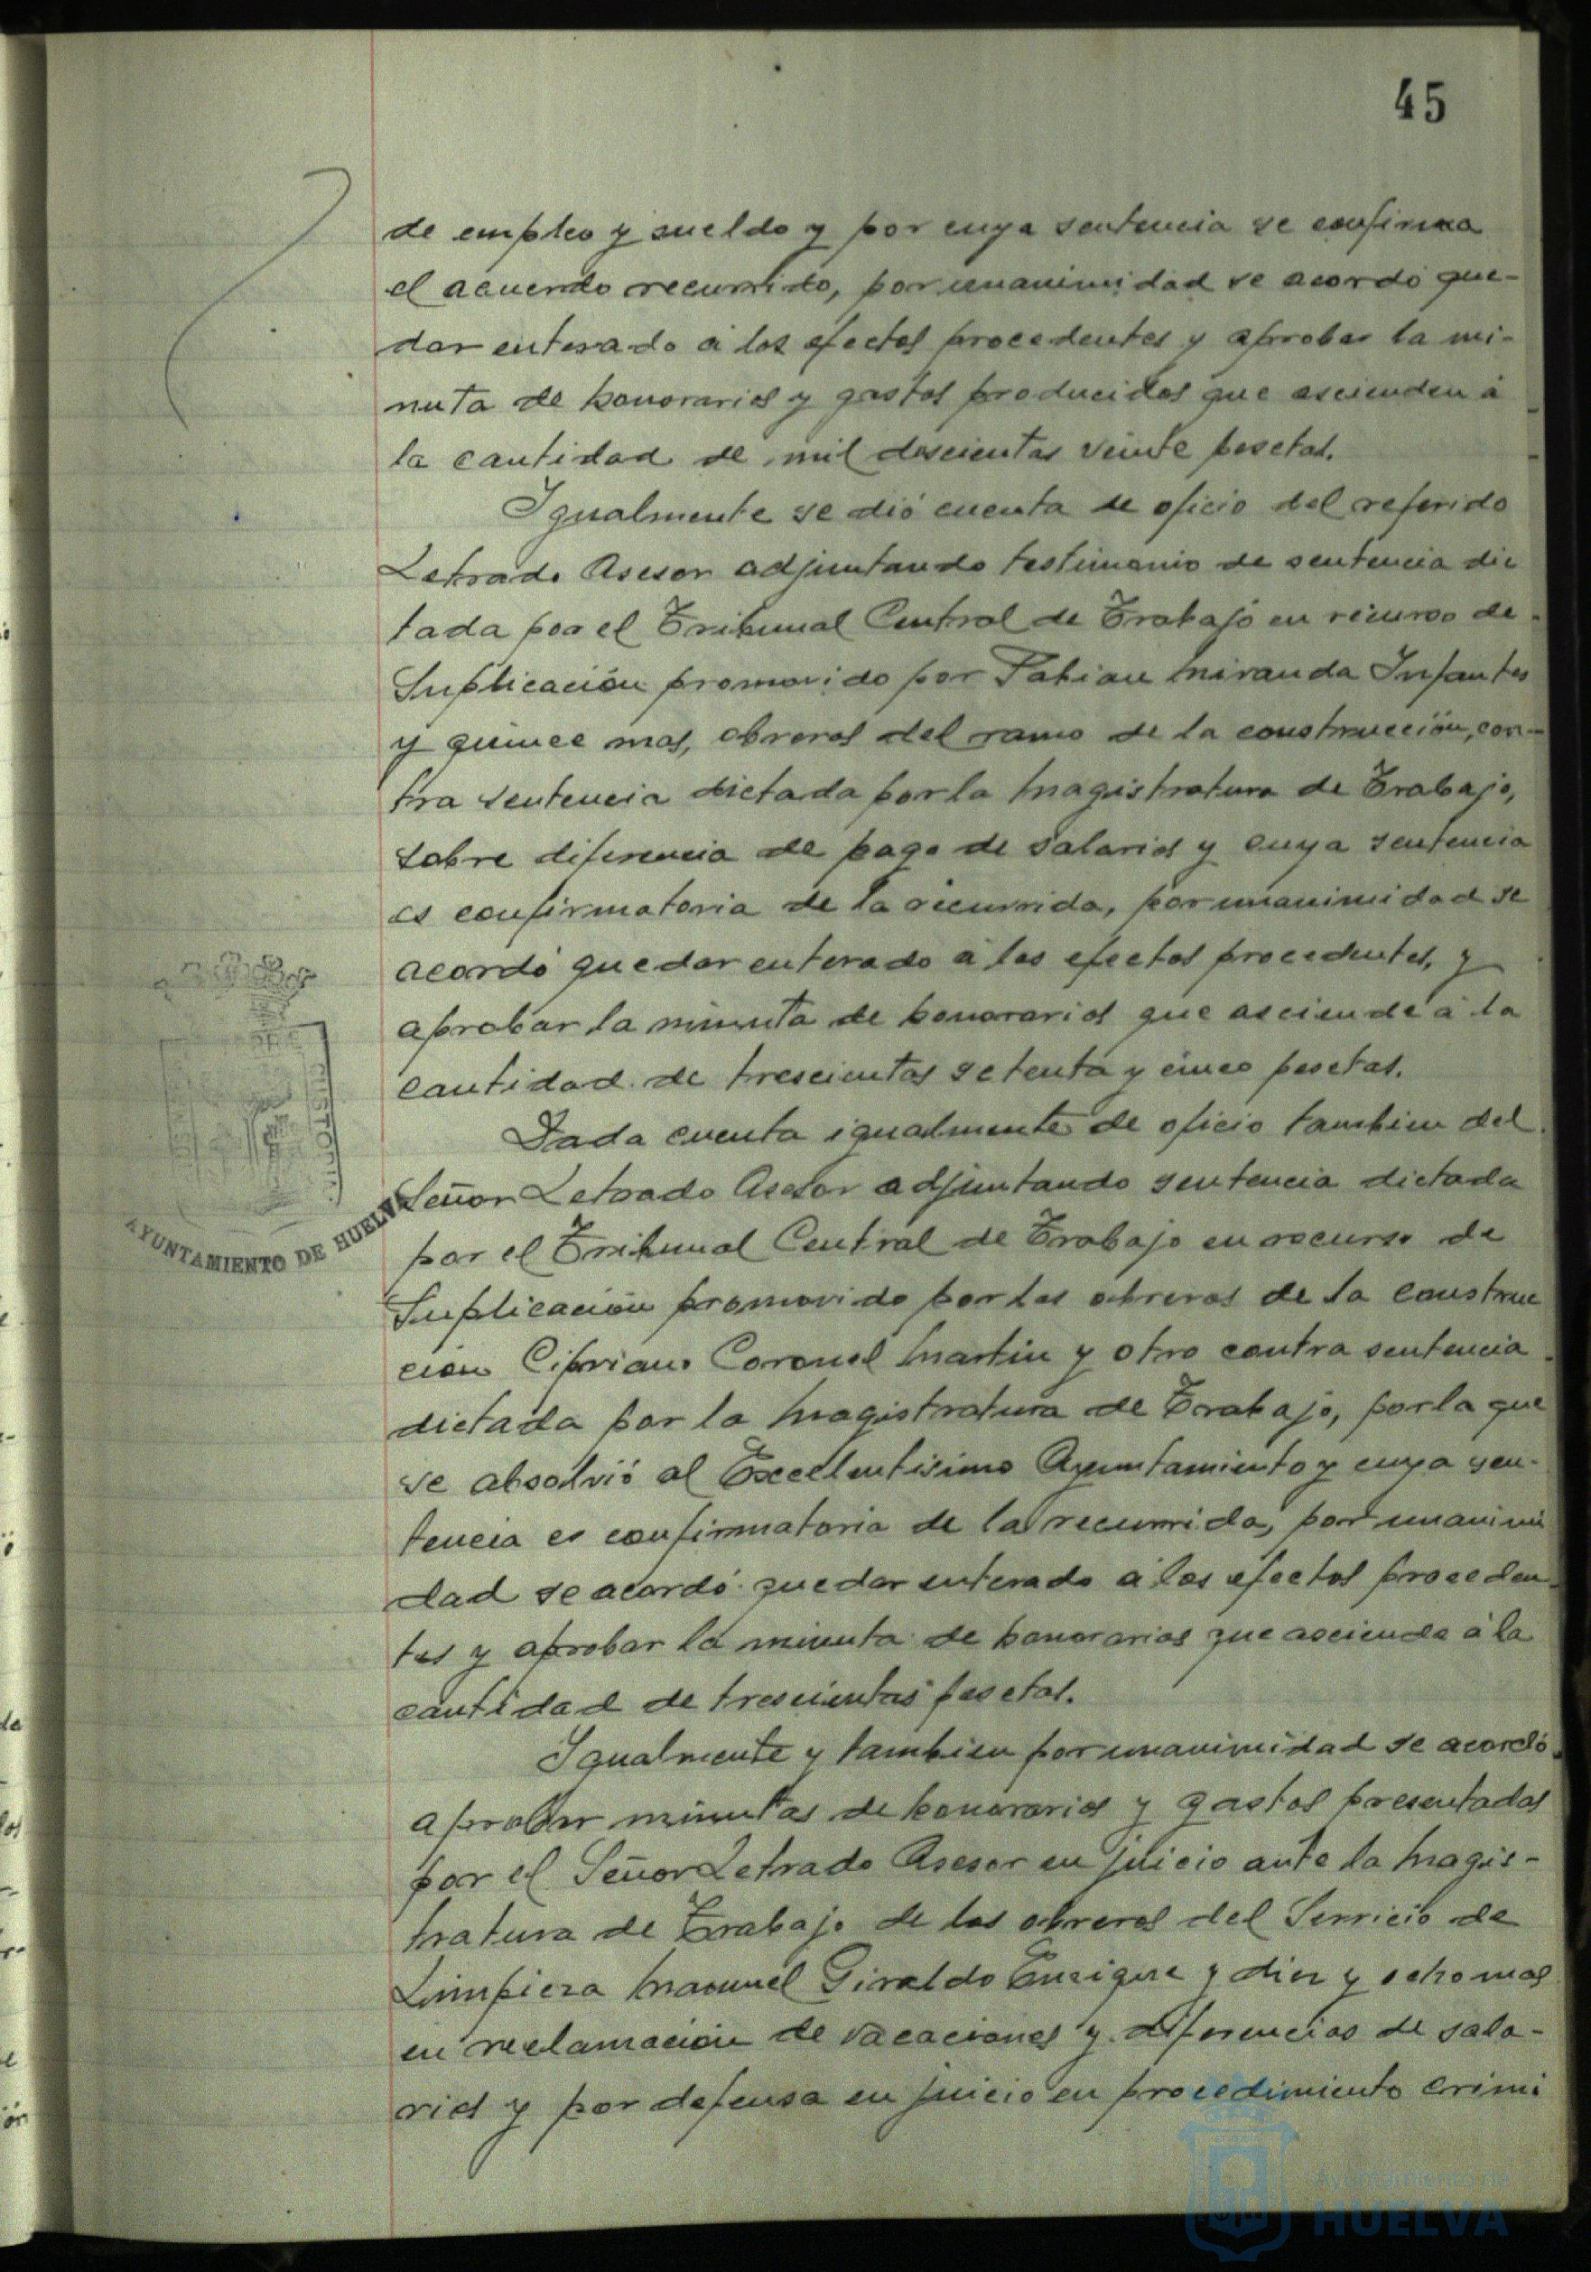 45
de empleo y sueldo y por cuya sentencia se confirma
el acuerdo recurrido, por unanimidad se acordó que-
dar enterado á los efectos procedentes y aprobar la mi-
nuta de honorarios y gastos producidos que ascienden á
la cantidad de mil doscientas veinte pesetas.
Igualmente se dió cuenta de oficio del referido
Letrado Asesor adjuntando testimonio de sentencia dic
tada por el Tribunal Central de Trabajo en recurso de
Suplicación promovido por Fabian Miranda Infantes
y quince mas, obreros del ramo de la construcción, con-
tra sentencia dictada por la Magistratura de Trabajo,
sobre diferencia de pago de salarios y cuya sentencia
es confirmatoria de la recurrida, por unanimidad se
acordó quedar enterado á los efectos procedentes, y
aprobar la minuta de honorarios que asciende á la
cantidad de trescientas setenta y cinco pesetas.
Dada cuenta igualmente de oficio tambien del
Señor Letrado Asesor adjuntando sentencia dictada
por el Tribunal Central de Trabajo en recurso de
Suplicación promovido por los obreros de la construc
ción Cipriano Coronel Martin y otro contra sentencia
dictada por la Magistratura de Trabajo, por la que
se absolvió al Excelentisimo Ayuntamiento y cuya sen-
tencia es confirmatoria de la recurrida, por unanimi
dad se acordó quedar enterado á los efectos proceden
tes y aprobar la minuta de honorarios que asciende á la
cantidad de trescientas pesetas.
Igualmente y tambien por unanimidad se acordó
aprobar minutas de honorarios y gastos presentados
por el Señor Letrado Asesor en juicio ante la Magis-
tratura de Trabajo de los obreros del Servicio de
Limpieza Manuel Giraldo Enrique y diez y ocho mas
en reclamación de vacaciones y diferencias de sala-
rios y por defensa en juicio en procedimiento crimi
AYUNTAMIENTO DE HUELVA
Ayuntamiento de
HUELVA